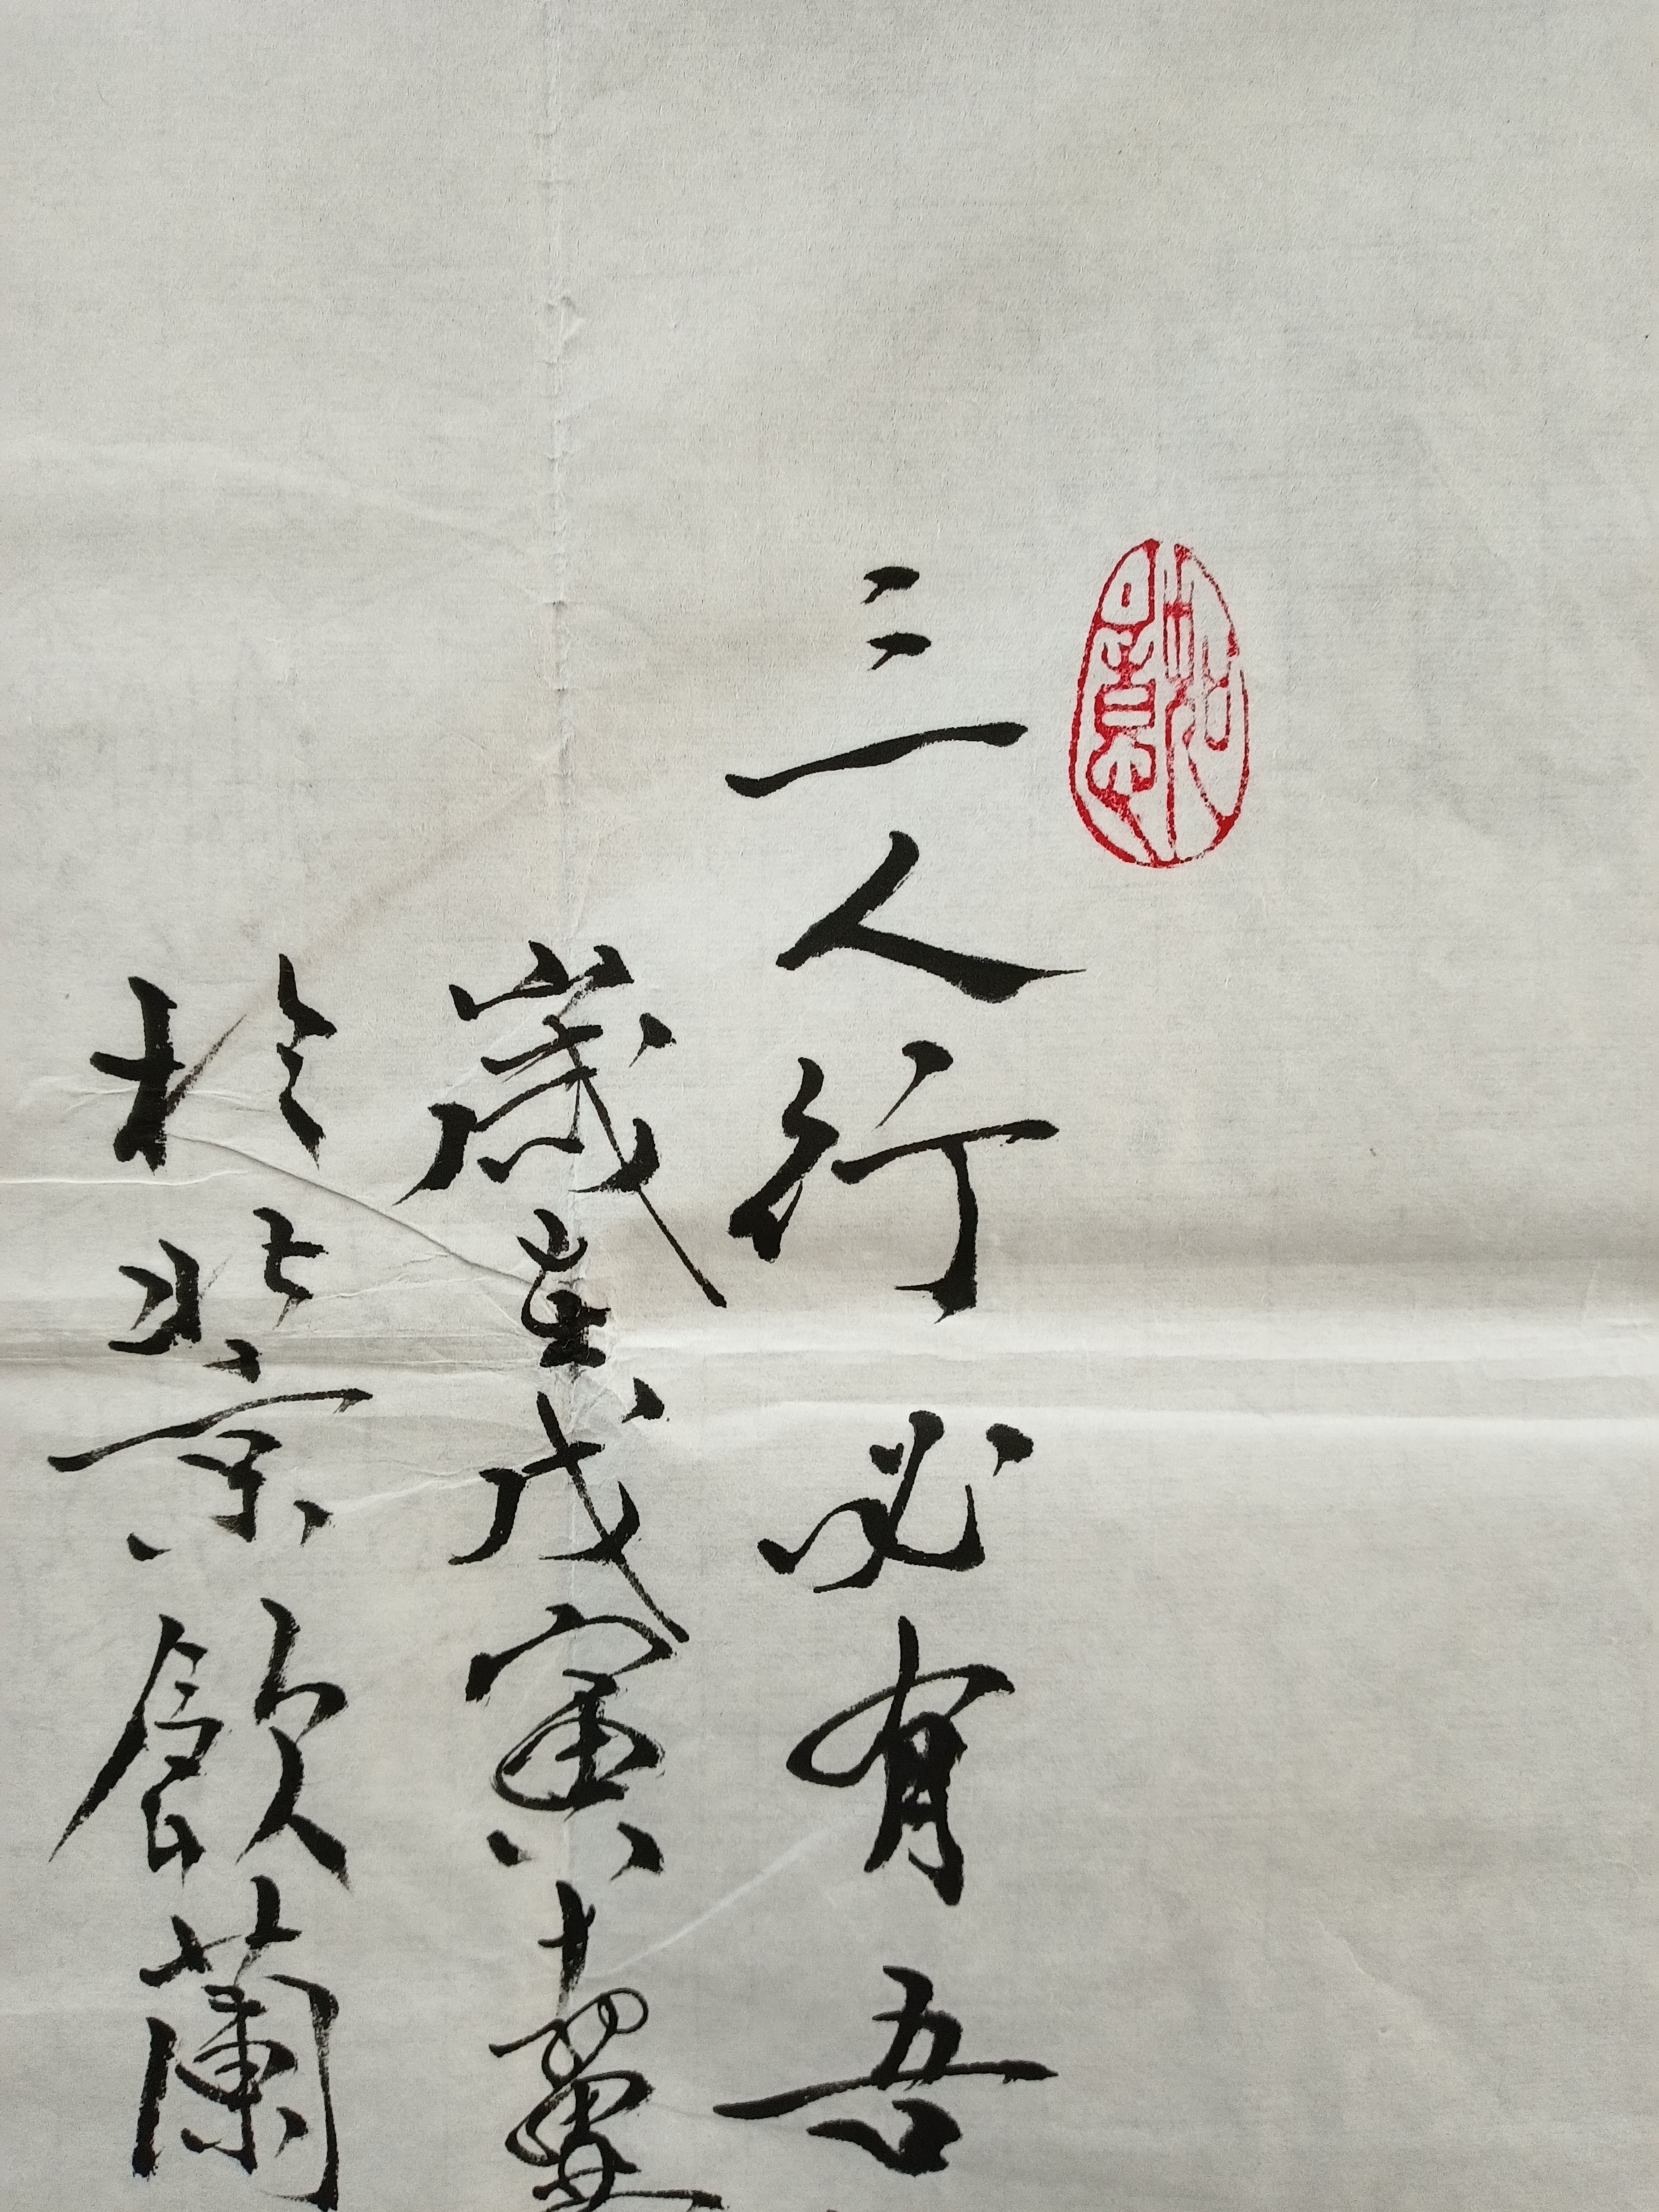 三人行必有吾
歲在戊寅夏
於北京飲蘭